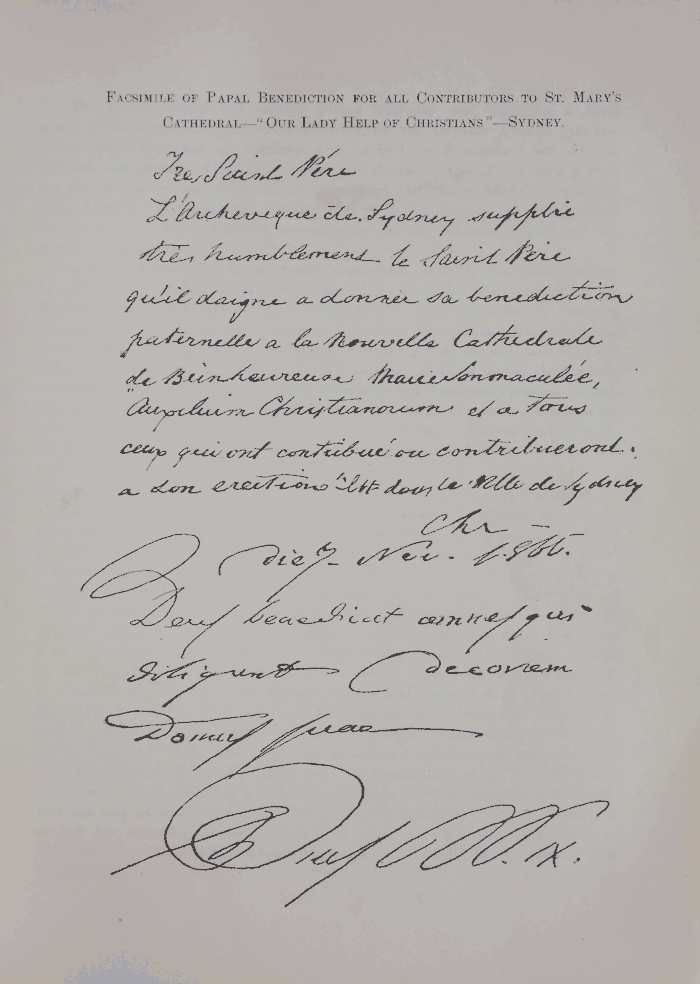 FACSIMILE OF PAPAL BENEDICTION FOR ALL CONTRIBUTORS TO ST. MARY'S
CATHEDRAL—"OUR LADY HELP OF CHRISTIANS"—SYDNEY.
Tres Saint Père
L'Archeveque de Sydney supplie
très humblement le Saint Père
qu'il daigne a donner sa benediction
paternelle a la Nouvelle Cathedrale
de Bienheureuse Marie Immaculée,
Auxilium Christianorum et a Tous
ceux qui ont contribué ou contribueront
a son erection dans la Ville de Sydney
die 7 Nov. 1866.
Deus benedicat omnes qui
diligunt decorem
Domus suae
Pius PP. IX.